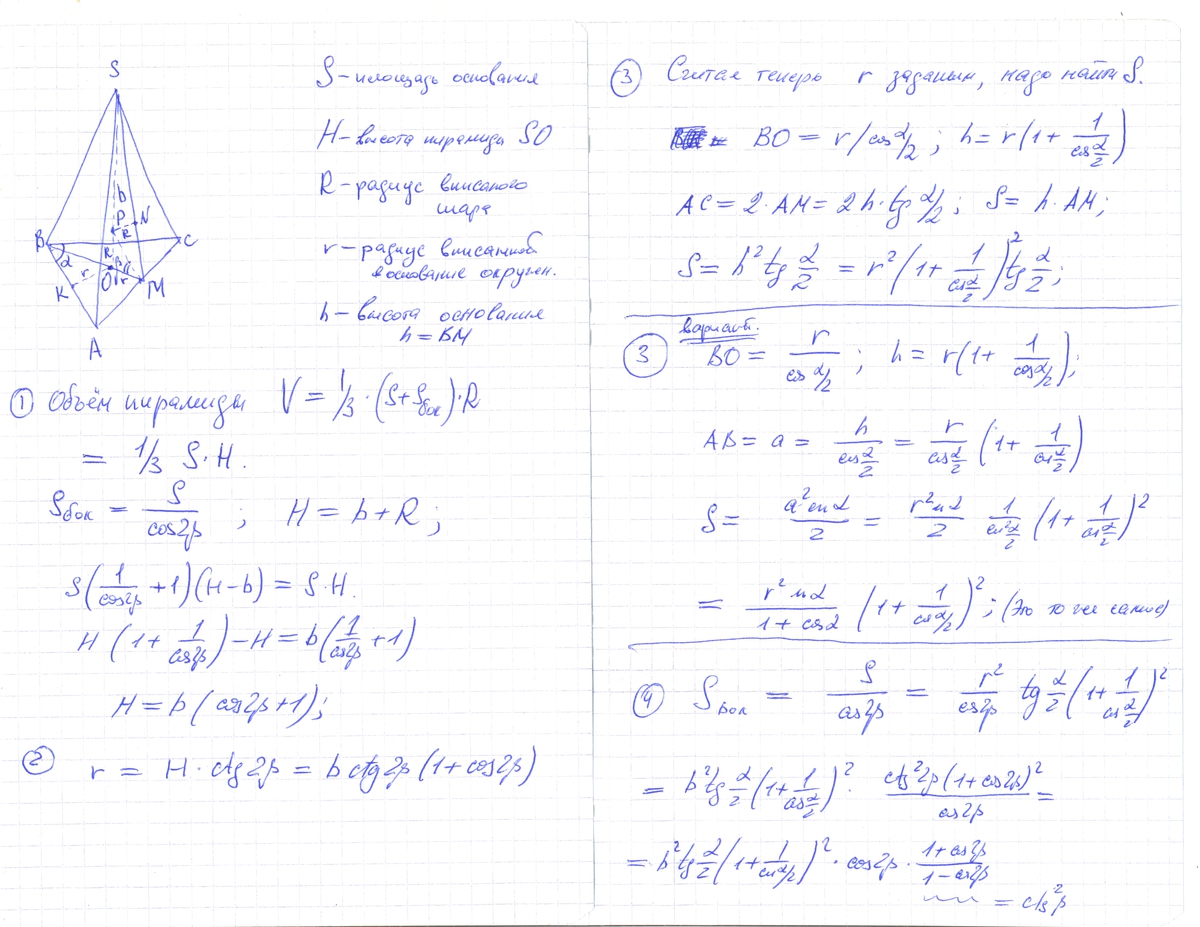 S
b
P
N
R
B
C
α
R
β
r
O
r
K
M
A
S – площадь основания
H – высота пирамиды SO
R – радиус вписаного
шара
r – радиус вписанной
в основание окружн.
h – высота основания
h = BM
① Объём пирамиды V = 1/3 · (S + Sбок) · R
= 1/3 S · H.
Sбок = S / cos2β ; H = b + R ;
S(1/cos2β + 1)(H – b) = S · H.
H (1 + 1/cos2β) – H = b(1/cos2β + 1)
H = b (cos2β + 1);
② r = H · ctg2β = b ctg2β (1 + cos2β)
③ Считая теперь r заданым, надо найти S.
BO = r / cos α/2 ; h = r(1 + 1/cos α/2)
AC = 2 · AM = 2h · tg α/2 ; S = h · AM ;
S = h² tg α/2 = r² (1 + 1/cos α/2)² tg α/2 ;
③ вариант.
BO = r / cos α/2 ; h = r(1 + 1/cos α/2);
AB = a = h / cos α/2 = r / cos α/2 (1 + 1/cos α/2)
S = a² sin α / 2 = r² sin α / 2 · 1/cos² α/2 (1 + 1/cos α/2)²
= r² sin α / (1 + cos α) (1 + 1/cos α/2)² ; (Это то же самое)
④ Sбок = S / cos2β = r² / cos2β tg α/2 (1 + 1/cos α/2)²
= b² tg α/2 (1 + 1/cos α/2)² · ctg²2β (1 + cos2β)² / cos2β =
= b² tg α/2 (1 + 1/cos α/2)² · cos2β · (1 + cos2β) / (1 – cos2β)
= ctg²β